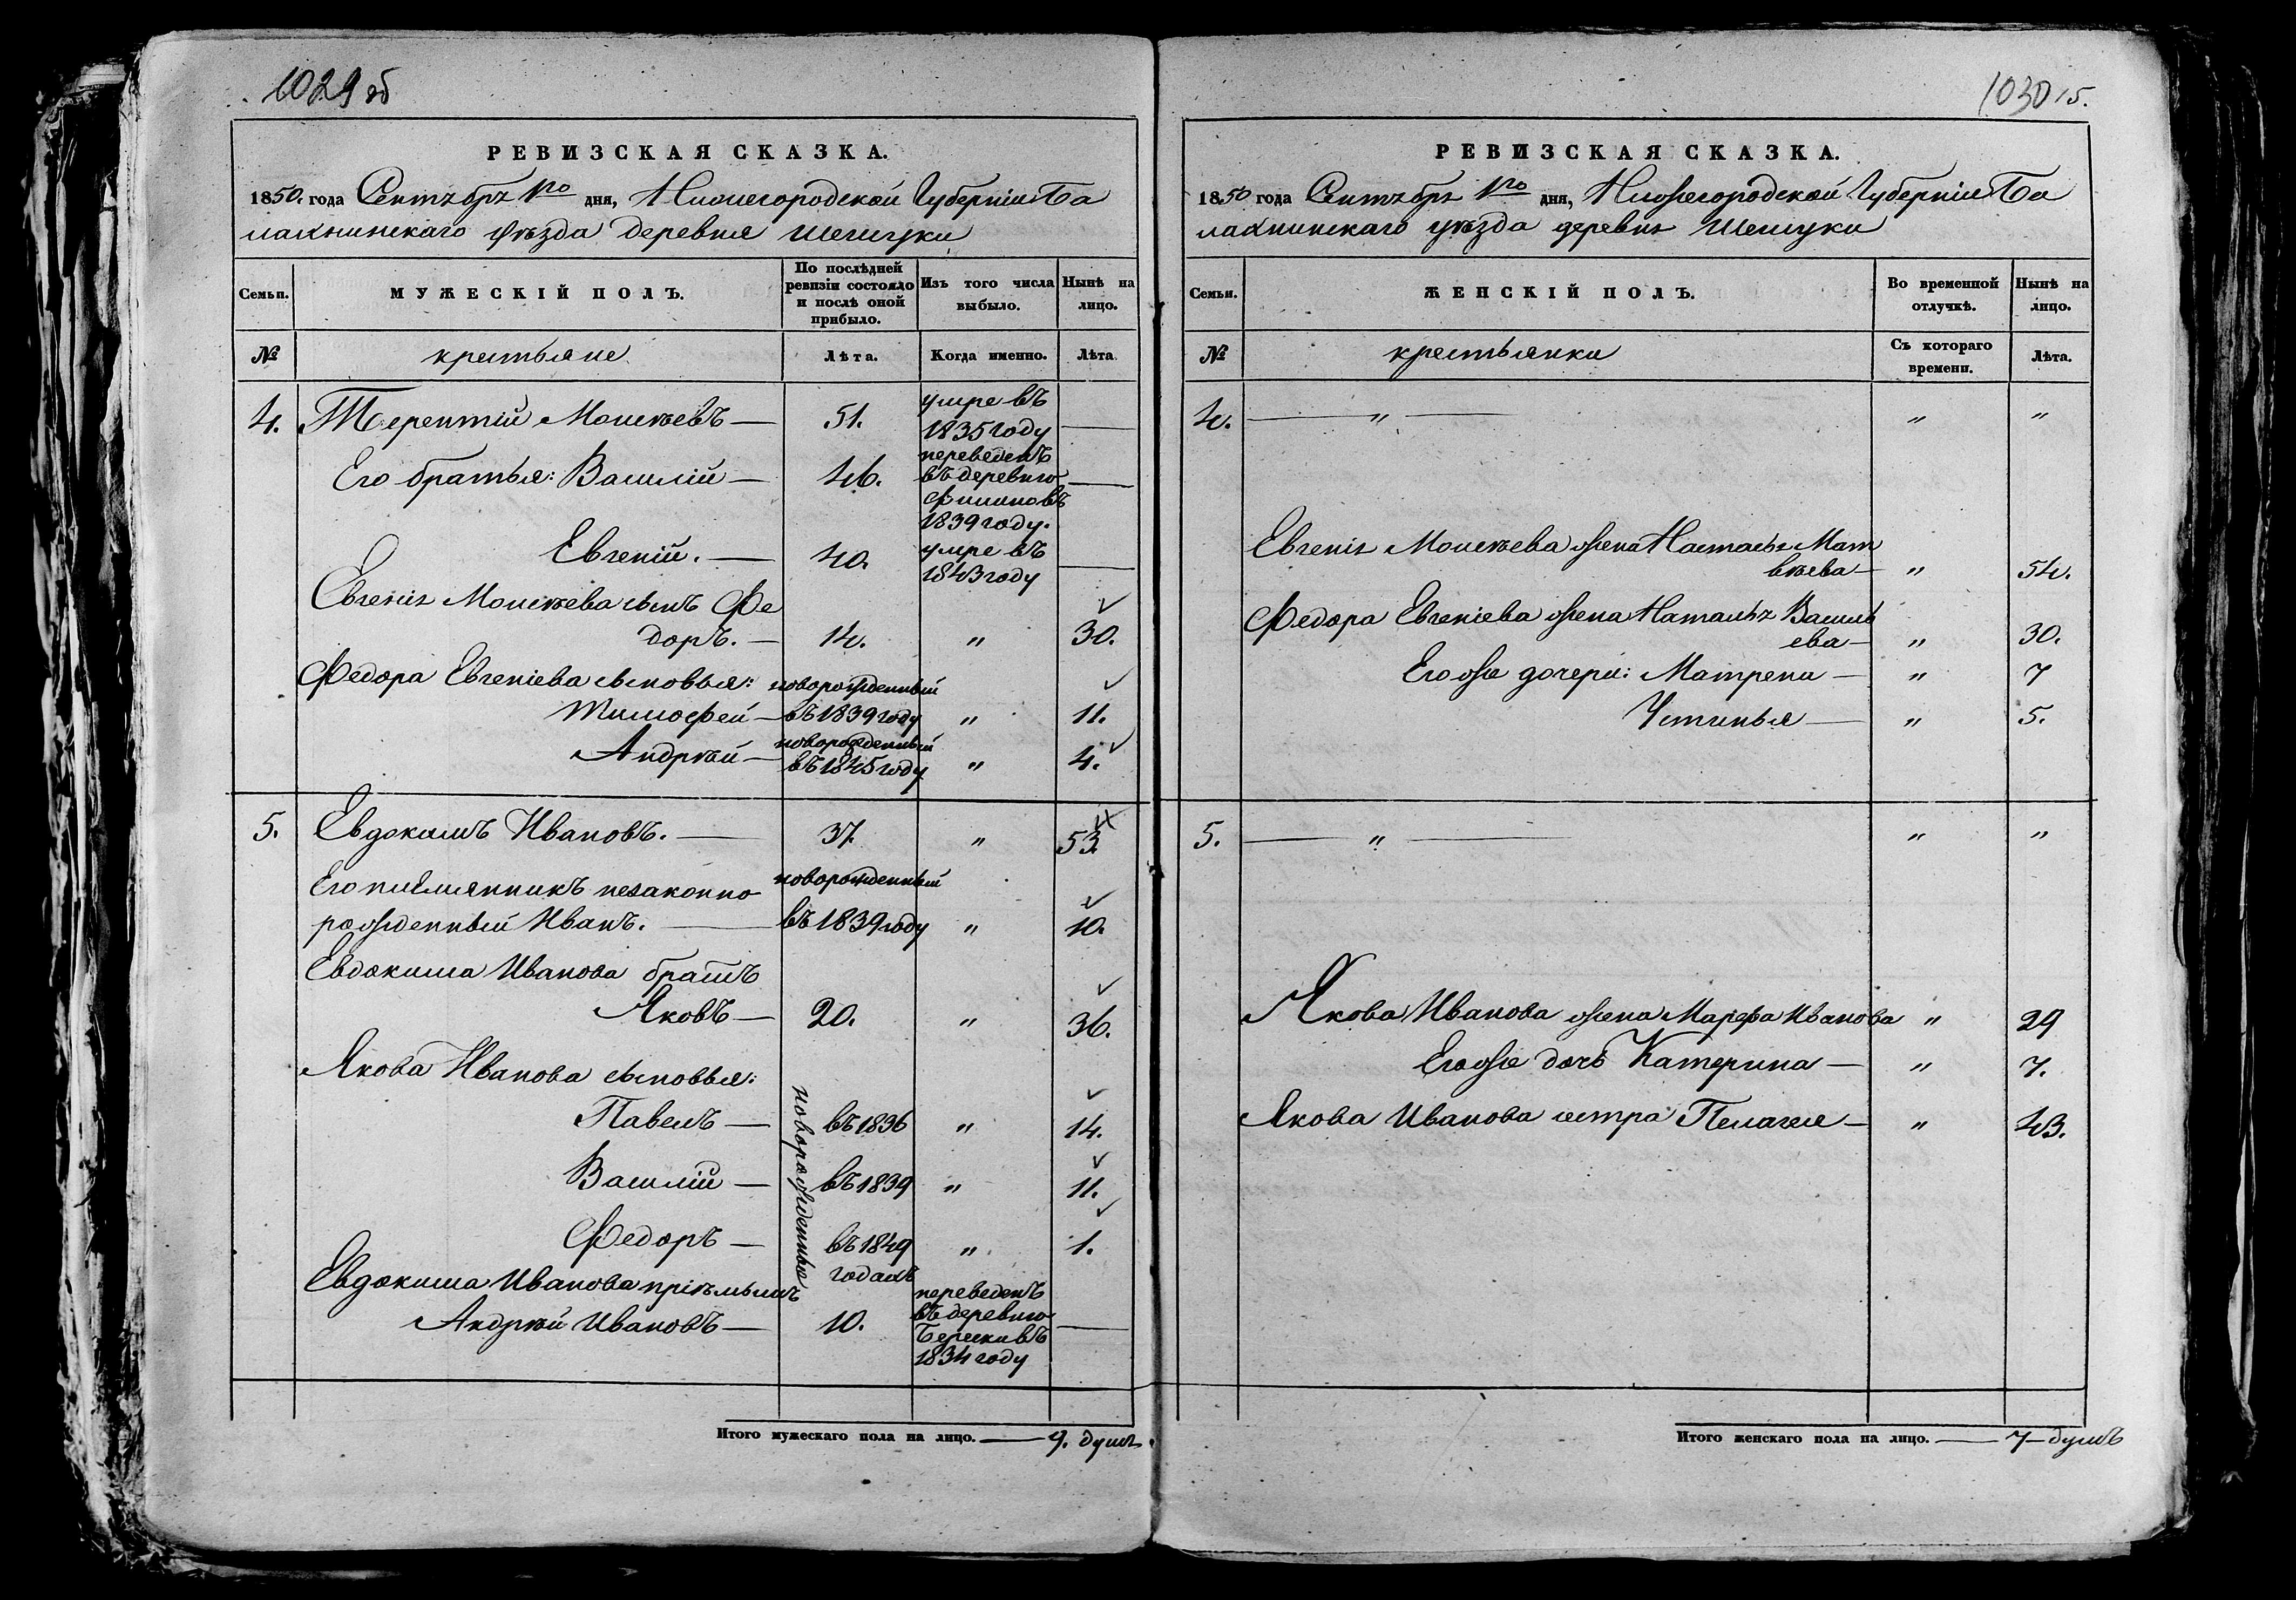 1029 об
РЕВИЗСКАЯ СКАЗКА.
1850. года Сентября 1го дня, Нижегородской Губерніи Ба
лахнинскаго уѣзда деревня
Семьи.
МУЖЕСКІЙ ПОЛЪ.
По послѣдней
ревизіи состояло
и послѣ оной
прибыло.
Изъ того числа
выбыло.
Нынѣ на
лицо.
№
крестьяне
Лѣта.
Когда именно.
Лѣта.
4. Терентій Моисѣевъ — 51. умре въ
1835 году —
Его братья: Василій — 46. переведенъ
въ деревню
въ
1839 году. —
Евгеній. — 40. умре въ
1843 году —
Евгенія Моисѣева сынъ Фе
доръ. — 14. " 30.
Федора Евгеніева сыновья: новорожденный
Тимофей — въ 1839 году " 11.
новорожденный
Андрѣй — въ 1845 году " 4.
5. Евдокимъ Ивановъ. — 37. " 53.
Его племянникъ незаконно новорожденный
рожденный Иванъ. — въ 1839 году " 10.
Евдокима Иванова братъ
Яковъ — 20. " 36.
Якова Иванова сыновья:
новорожденные
Павелъ — въ 1836 " 14.
Василій — въ 1839 " 11.
Федоръ — въ 1849 " 1.
годахъ
Евдокима Иванова пріемышъ
Андрѣй Ивановъ — 10. переведенъ
въ деревню
въ
1834 году —
Итого мужескаго пола на лицо. — 9. душъ.
1030 15.
РЕВИЗСКАЯ СКАЗКА.
1850 года Сентября 1го дня, Нижегородской Губерніи Ба
лахнинскаго уѣзда деревни
Семьи.
ЖЕНСКІЙ ПОЛЪ.
Во временной
отлучкѣ.
Нынѣ на
лицо.
№
крестьянки
Съ котораго
времени.
Лѣта.
4. — " — " "
Евгенія Моисѣева жена Настасья Мат
вѣева — " 54.
Федора Евгеніева жена Наталья Василь
ева — " 30.
Его же дочери: Матрена — " 7
Устинья — " 5.
5. — " — " "
Якова Иванова жена Марфа Иванова " 29
Его же дочь Катерина — " 7.
Якова Иванова сестра Пелагея — " 43.
Итого женскаго пола на лицо. — 7 — душъ